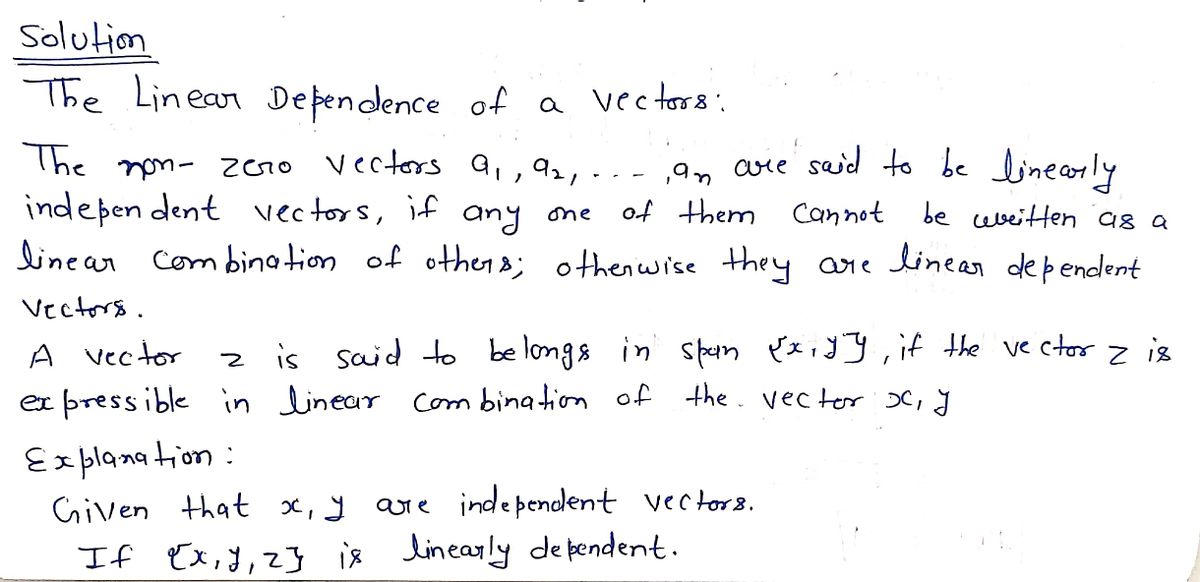 Solution
The Linear Dependence of a vectors:
The non-zero vectors a₁, a₂, ---, aₙ are said to be linearly
independent vectors, if any one of them cannot be written as a
linear combination of others; otherwise they are linear dependent
vectors.
A vector z is said to belongs in span {x, y}, if the vector z is
expressible in linear combination of the vector x, y
Explanation:
Given that x, y are independent vectors.
If {x, y, z} is linearly dependent.